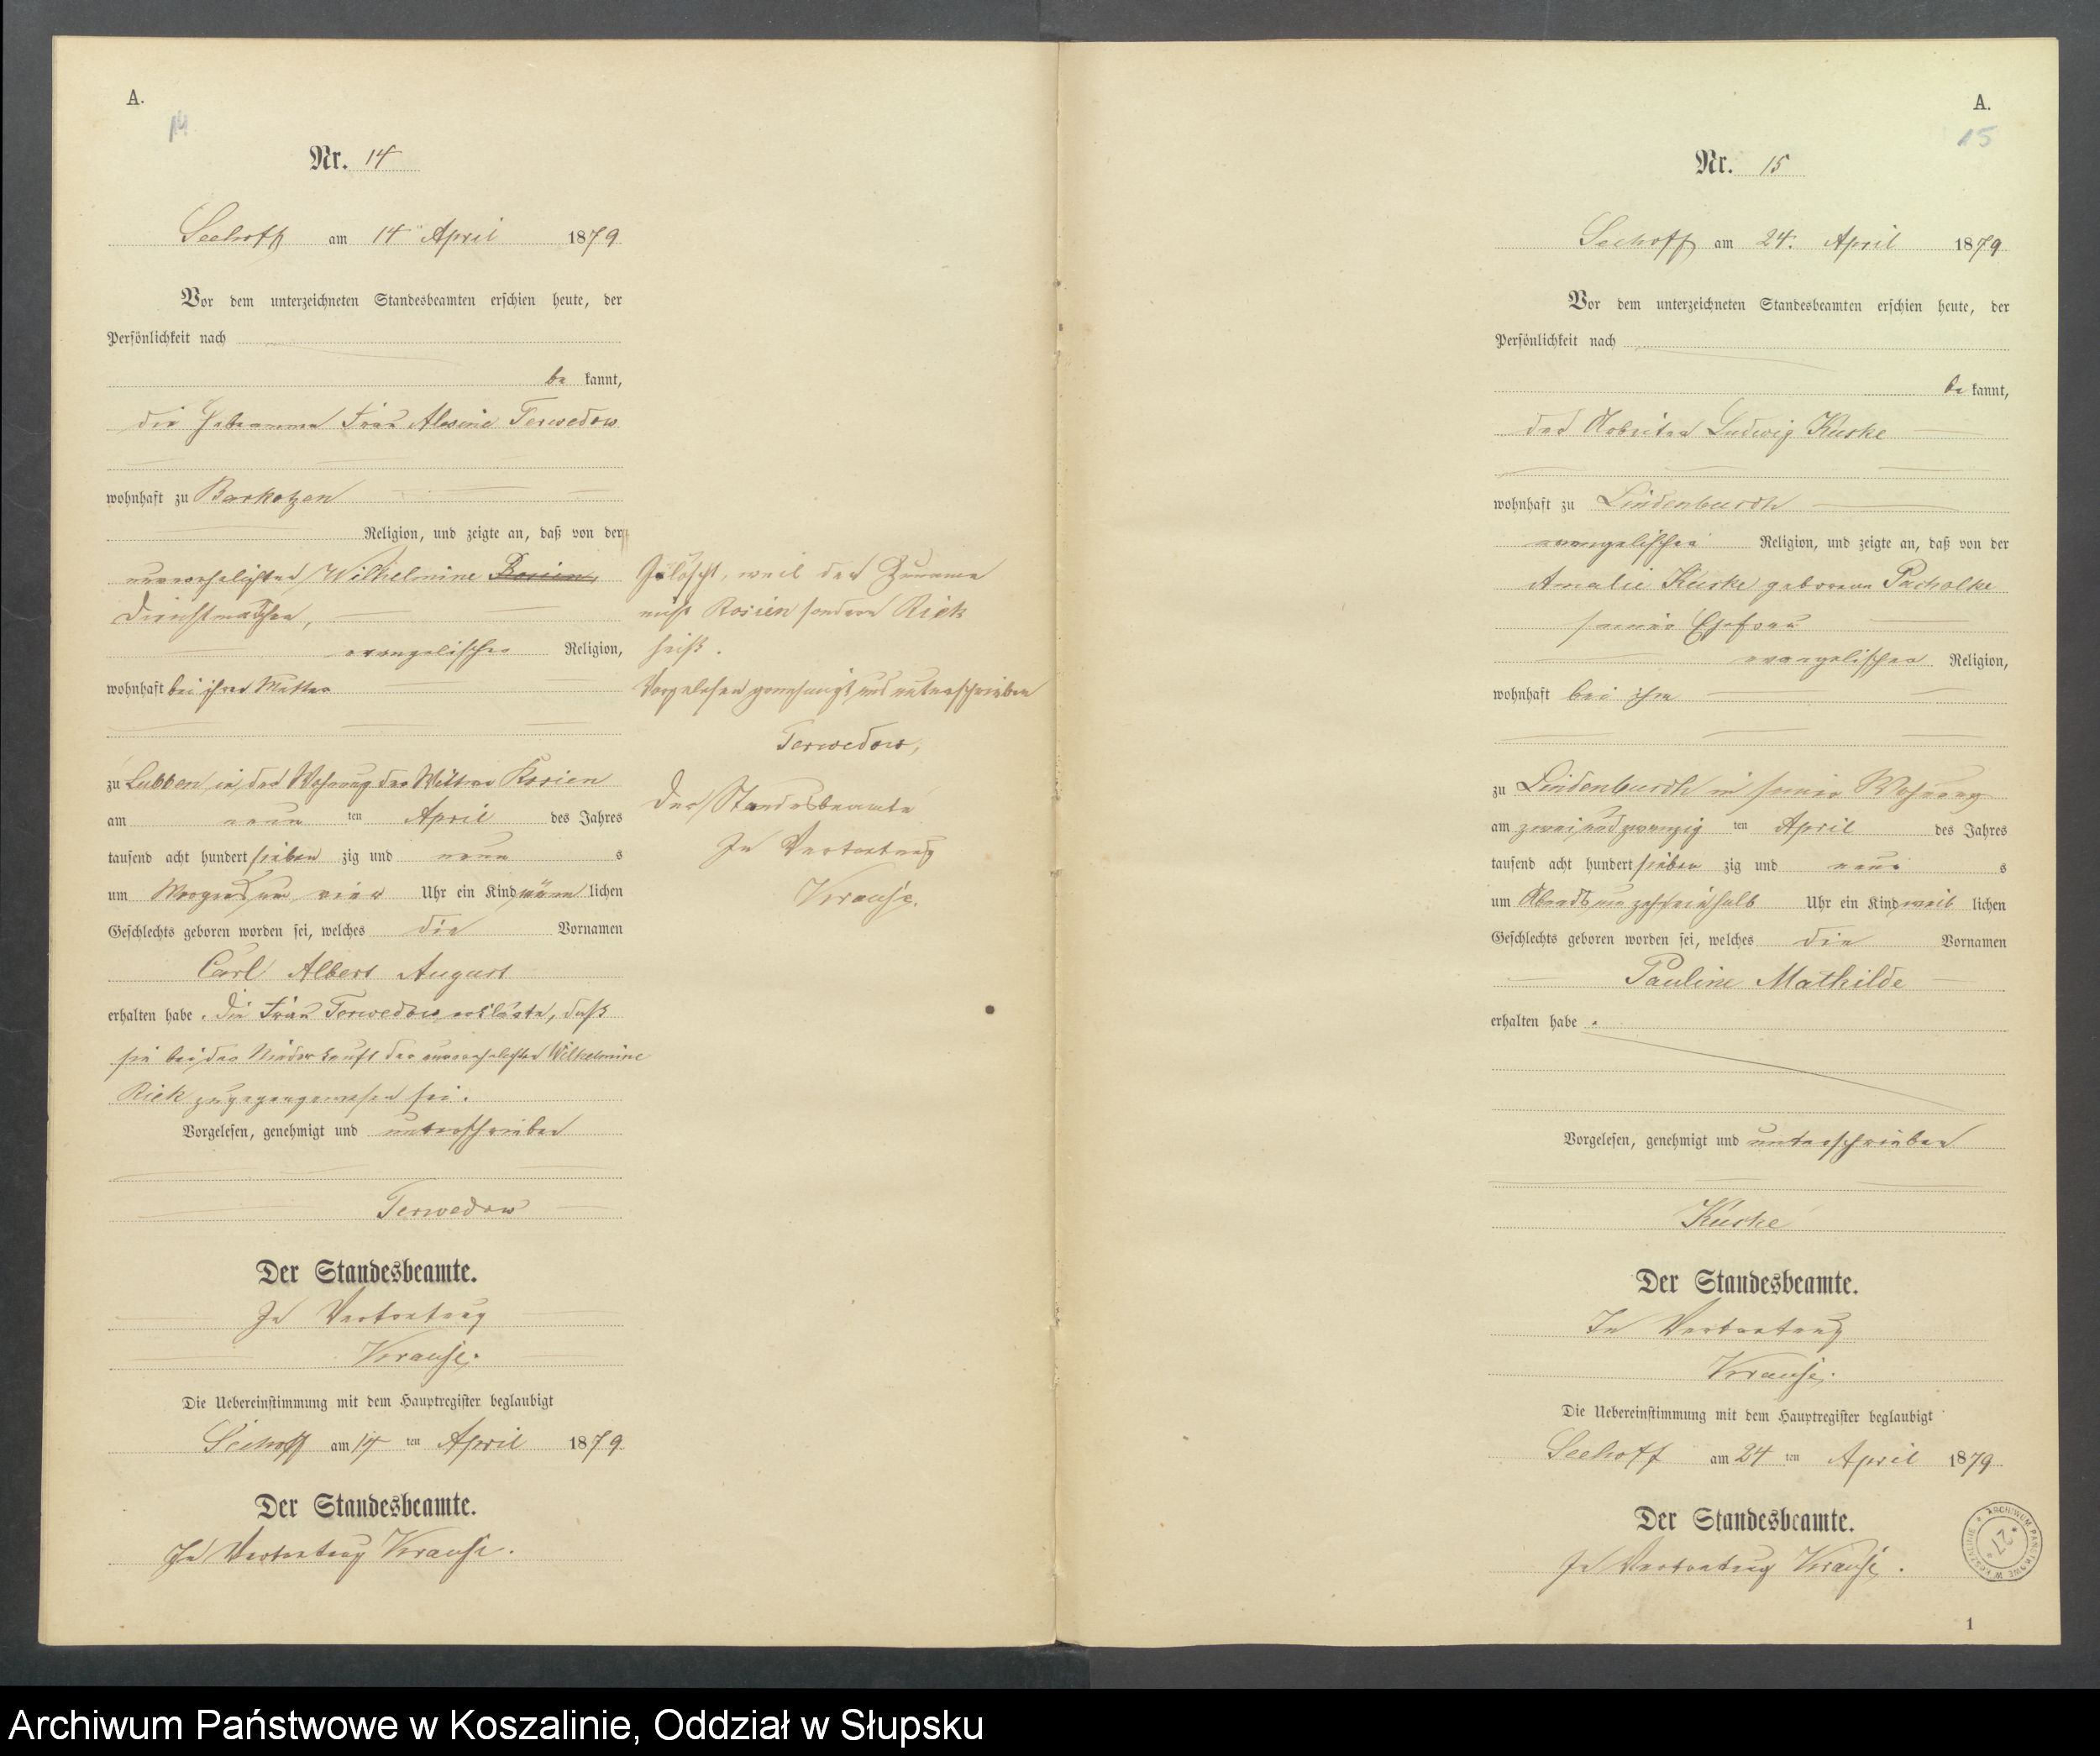 A.
14
Nr. 14
Seehoff am 14 April 1879
Vor dem unterzeichneten Standesbeamten erschien heute, der
Persönlichkeit nach
be kannt,
die Hebamme Frau Terwedow
wohnhaft zu Barkotzen
Religion, und zeigte an, daß von der
unverehelichten Wilhelmine Rosien,
Dienstmädchen,
evangelischer Religion,
wohnhaft bei ihrer Mutter
zu Lubben in der Wohnung der Mutter Rosien
am neun ten April des Jahres
tausend acht hundert sieben zig und neun s
um Morgens um vier Uhr ein Kind männ lichen
Geschlechts geboren worden sei, welches die Vornamen
Carl Albert August
erhalten habe. Die Frau Terwedow erklärte, daß
sie bei der Niederkunft der unverehelichten Wilhelmine
Riek zugegen gewesen sei.
Vorgelesen, genehmigt und unterschrieben
Terwedow
Der Standesbeamte.
In Vertretung
Krause.
Die Uebereinstimmung mit dem Hauptregister beglaubigt
Seehoff am 14 ten April 1879
Der Standesbeamte.
In Vertretung Krause.
Gelöscht, weil der Zuname
nicht Rosien sondern Riek
heißt.
Vorgelesen genehmigt und unterschrieben
Terwedow,
Der Standesbeamte
In Vertretung
Krause.
A.
15
Nr. 15
Seehoff am 24. April 1879
Vor dem unterzeichneten Standesbeamten erschien heute, der
Persönlichkeit nach
be kannt,
der Arbeiter Ludwig Kuske
wohnhaft zu Lindenbusch
evangelischer Religion, und zeigte an, daß von der
Amalie Kuske geborene Pacholke
seiner Ehefrau
evangelischer Religion,
wohnhaft bei ihm
zu Lindenbusch in seiner Wohnung
am zwei und zwanzig ten April des Jahres
tausend acht hundert sieben zig und neun s
um Abends um zehneinhalb Uhr ein Kind weib lichen
Geschlechts geboren worden sei, welches die Vornamen
Pauline Mathilde
erhalten habe.
Vorgelesen, genehmigt und unterschrieben
Kuske
Der Standesbeamte.
In Vertretung
Krause.
Die Uebereinstimmung mit dem Hauptregister beglaubigt
Seehoff am 24 ten April 1879
Der Standesbeamte.
In Vertretung Krause.
ARCHIWUM PAŃSTWOWE W KOSZALINIE
27
1
Archiwum Państwowe w Koszalinie, Oddział w Słupsku